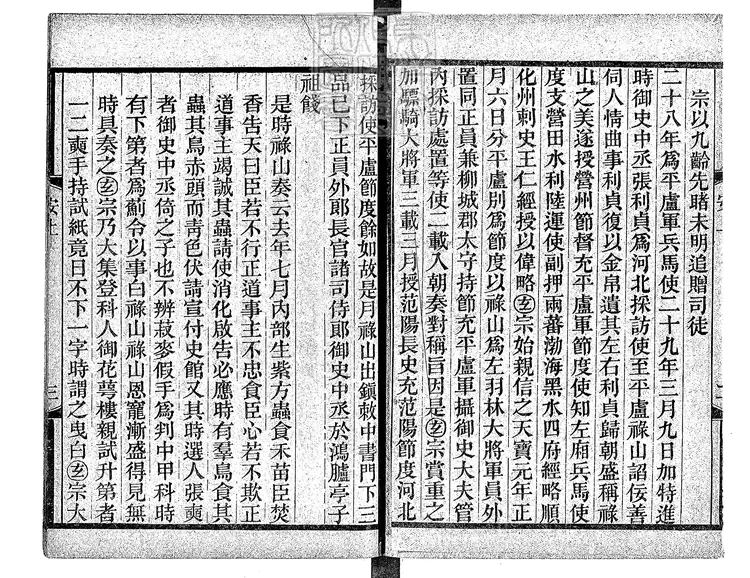 宗以九齡先睹未明追贈司徒
二十八年爲平盧軍兵馬使二十九年三月九日加特進
時御史中丞張利貞爲河北採訪使至平盧祿山諂佞善
伺人情曲事利貞復以金帛遺其左右利貞歸朝盛稱祿
山之美遂授營州節督充平盧軍節度使知左廂兵馬使
度支營田水利陸運使副押兩蕃渤海黑水四府經略順
化州刺史王仁經授以偉略玄宗始親信之天寶元年正
月六日分平盧別爲節度以祿山爲左羽林大將軍員外
置同正員兼柳城郡太守持節充平盧軍攝御史大夫管
內採訪處置等使二載入朝奏對稱旨因是玄宗賞重之
加驃騎大將軍三載三月授范陽長史充范陽節度河北
採訪使平盧節度餘如故是月祿山出鎭敕中書門下三
品已下正員外郎長官諸司侍郎御史中丞於鴻臚亭子
祖餞
是時祿山奏云去年七月內部生紫方蟲食禾苗臣焚
香告天曰臣若不行正道事主不忠食臣心若不欺正
道事主竭誠其蟲請使消化啟告必應時有羣鳥食其
蟲其鳥赤頭而青色伏請宣付史館又其時選人張奭
者御史中丞倚之子也不辨菽麥假手爲判中甲科時
有下第者爲薊令以事白祿山祿山恩寵漸盛得見無
時具奏之玄宗乃大集登科人御花萼樓親試升第者
一二奭手持試紙竟日不下一字時謂之曳白玄宗大
安上
三